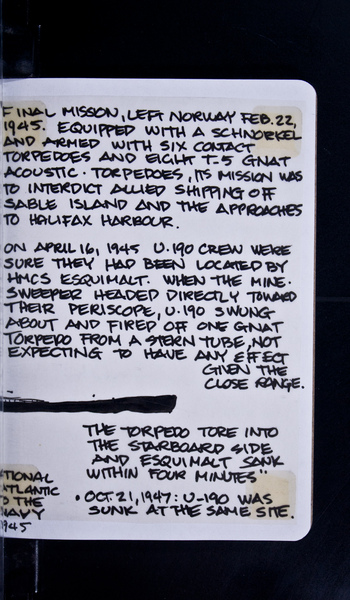 FINAL MISSON, LEFT NORWAY FEB. 22,
1945. EQUIPPED WITH A SCHNORKEL
AND ARMED WITH SIX CONTACT
TORPEDOES AND EIGHT T-5 GNAT
ACOUSTIC · TORPEDOES, ITS MISSION WAS
TO INTERDICT ALLIED SHIPPING OFF
SABLE ISLAND AND THE APPROACHES
TO HALIFAX HARBOUR.
ON APRIL 16, 1945 U·190 CREW WERE
SURE THEY HAD BEEN LOCATED BY
HMCS ESQUIMALT. WHEN THE MINE·
SWEEPER HEADED DIRECTLY TOWARD
THEIR PERISCOPE, U·190 SWUNG
ABOUT AND FIRED OFF ONE GNAT
TORPEDO FROM A STERN TUBE, NOT
EXPECTING TO HAVE ANY EFFECT
GIVEN THE
CLOSE RANGE.
THE TORPEDO TORE INTO
THE STARBOARD SIDE
AND ESQUIMALT SANK
WITHIN FOUR MINUTES"
· OCT. 21, 1947: U-190 WAS
SUNK AT THE SAME SITE.
ATIONAL
ATLANTIC
O THE
NAVY
1945